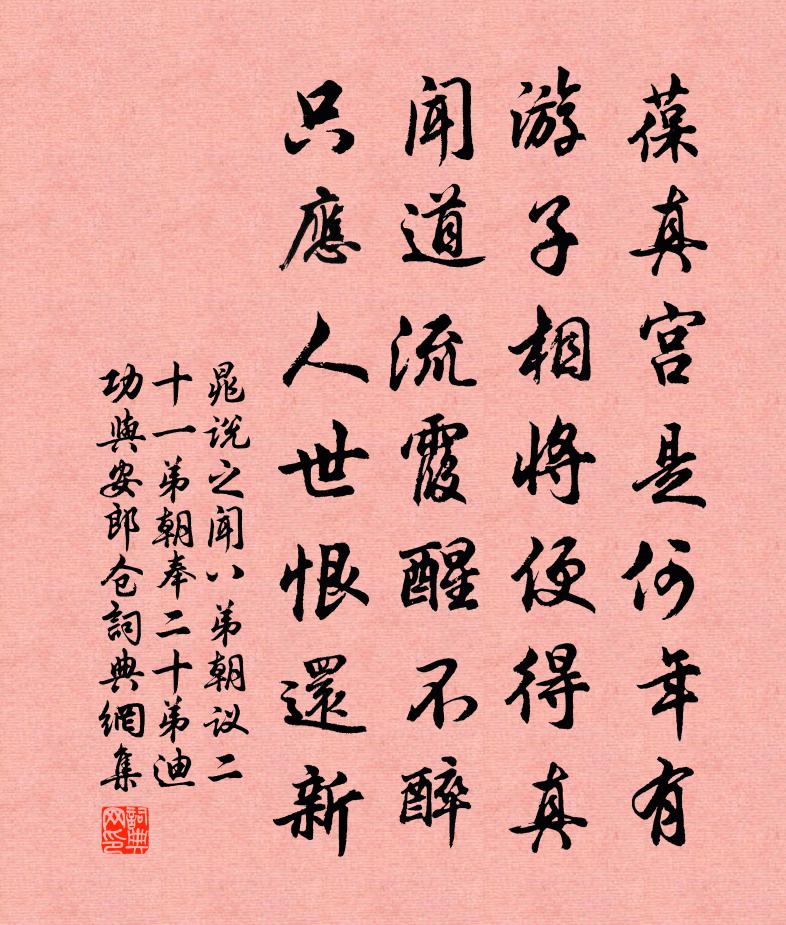 葆真宫是何年有
游子相將便得真
闻道流霞醒不醉
只應人世恨還新
晁说之闻八弟朝议二
十一弟朝奉二十弟迪
功與安郎仓詞典網集
詞典
网印